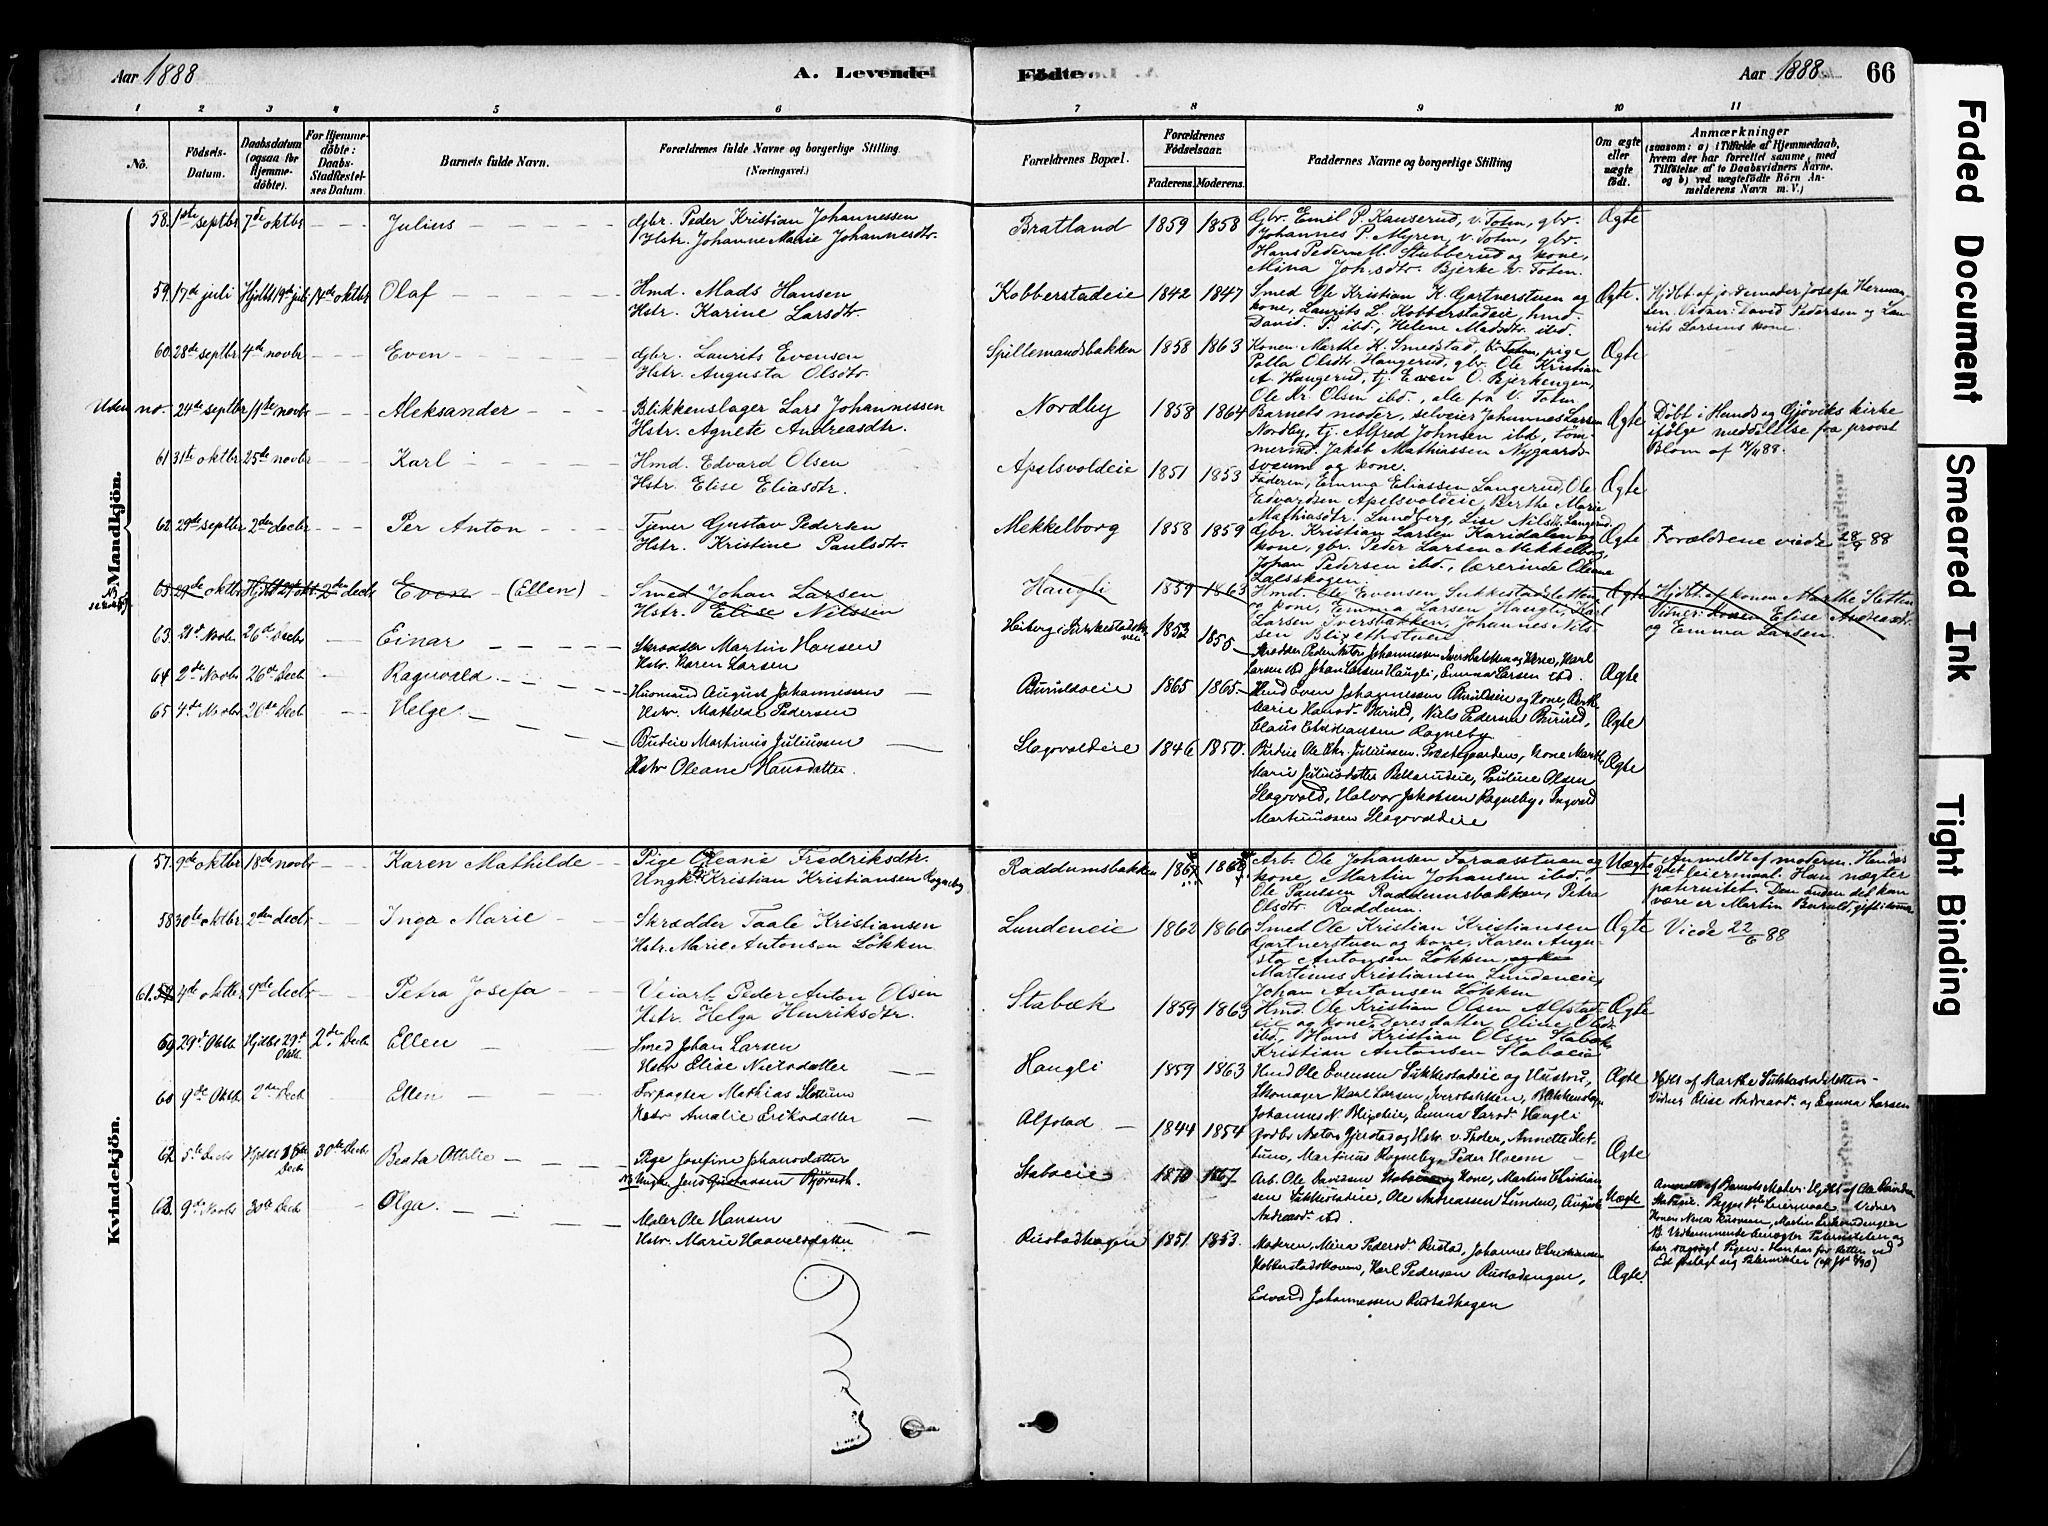 Aar 1888
A. Levende
Fødte
Aar 1888
66
1 2 3 4 5 6 7 8 9 10 11
Nô.
Födsels-Datum.
Daabsdatum (ogsaa for Hjemmedöbte).
For Hjemmedöbte: Daabs-Stadfæstelses Datum.
Barnets fulde Navn.
Forældrenes fulde Navne og borgerlige Stilling (Næringsvei.)
Forældrenes Bopæl.
Forældrenes Fødselsaar.
Faderens. Moderens.
Faddernes Navne og borgerlige Stilling
Om ægte eller uægte födt.
Anmærkninger
(saasom: a) i Tilfælde af Hjemmedaab, hvem der har forrettet samme, med Tilføielse af to Daabsvidners Navne. og b) ved uægtefödte Börn Anmelderens Navn m. V.)
Mandkjön.
58. 1ste septbr 7de oktbr — — — Julius
Gbr. Peder Kristian Johannessen
Hstr. Johanne Marie Johannesdtr.
Bratland 1859 1858
Gbr. Emil P. Kauserud, v. Toten, gbr.
Johannes P. Myren, v. Toten, gbr.
Hans Pedersen Stubberud og kone,
Mina Johsdtr. Bjerke v. Toten.
Ægte
59. 17de juli Hjdbt 19de juli 14de oktbr Olaf
Hmd. Mads Hansen
Hstr. Karine Larsdtr.
Kobberstadeie 1842 1847
Smed Ole Kristian K. Gartnerstuen og
kone, Laurits L. Kobberstadeie, hmd.
David P. ibd., Helene Madsdtr. ibd.
Ægte.
Hjdbt af jordemoder Josefa Herman-
sen. Vidner: David Pedersen og Lau-
rits Larsens kone.
60. 28de septbr. 4de novbr — — — Even
Gbr. Laurits Evensen
Hstr. Augusta Olsdtr.
Spillemandsbakken 1858 1863
Konen Marthe K. Smedstad, V. Toten, pige
Polla Olsdtr. Haugerud, gbr. Ole Kristian
A. Haugerud, tj. Even O. Bjerkengen,
Ole Kr. Olsen ibd., alle fra V. Toten.
Ægte
Uden no. 24de septbr 11te novbr — — — Aleksander
Blikkenslager Lars Johannessen
Hstr. Agnete Andreasdtr.
Nordby 1858 1864
Barnets moder, selveier Johannes Larsen
Nordby, tj. Alfred Johnsen ibd., töm-
mermd. Jakob Mathiassen Nygaards-
sveum og kone.
Ægte
Döbt i Hunds og Gjöviks kirke
ifölge meddelelse fra provst
Blom af 14/11 88.
61. 31te oktbr. 25de novbr — — — Karl
Hmd. Edvard Olsen
Hstr. Elise Eliasdtr.
Apelsvoldeie 1851 1853
Faderen, Emma Eliassen Langerud, Ole
Edvardsen Apelsvoldeie, Berthe Marie
Mathiasdtr. Lundberg, Lise Nilsdtr. Langerud.
Ægte
62. 29de septbr 2den decbr — — — Per Anton
Tjener Gustav Pedersen
Hstr. Kristine Paulsdtr.
Mekkelborg 1858 1859
Gbr. Kristian Larsen Karidalen og
kone, gbr. Peder Larsen Mekkelborg,
Johan Pedersen ibd., lærerinde Oleane
Lafsskogen.
Ægte
Forældrene viede 28/9 88
63. 29de oktbr Hjdbt 29de okt 2den decbr Even — (Ellen)
Smed Johan Larsen
Hstr. Elise Nilssen
Haugli 1859 1863
Hmd. Ole Evensen, Sukkestadsletten
og kone, Emma Larsen Haugli, Karl
Larsen Iversbakken, Johannes Nils-
sen Blixethstuen
Ægte
Hjdbt af konen Marthe Sletten
Vidner: konen Elise Andreasdtr.
og Emma Larsen.
63. 21de Novbr 26de Decbr — Einar
Skrædder Martin Hansen
Hstr. Karen Larsen
1852 1855
Skrædder Peder Anton Johannessen Iversbakken og Kone, Karl
Larsen ibd Johan Larsen Haugli, Emma Larsen ibd.
Ægte
64 2de Novbr 26de Decbr — Ragnvald
Huusmand August Johannessen
Hstr. Mathilde Pedersen
Burulseie 1865 1865
Hmd Even Johannessen Burulseie og Kone, Berthe
Marie Hansdr. Burul, Niels Pedersen Burul,
Claus Christiansen Rogneby
Ægte
65 4de Novbr 26de Decbr — Helge
Budeie Martinus Juliussen
Hstr Oleane Hansdatter.
Slagsvoldeie 1846 1850.
Budeie Ole Chr. Juliussen Præstegaarden, Kone Marthe
Marie Juliusdatter Bakkerudeie, Pauline Olsen
Slagsvold, Halvor Jakobsen Rogneby, Ingvald
Martinussen Slagsvoldeie
Ægte
Kvindekjön.
57. 9de oktbr. 18de novbr — — Karen Mathilde
Pige Oleane Fredriksdtr.
Ungk. Kristian Kristiansen Rogneby
Raddumsbakken 1867 1868
Arb. Ole Johansen Foraasstuen og
kone, Martin Johansen ibd.,
Ole Paulsen Raddumsbakken, Petra
Olsdtr. Raddum.
Uægte
Anmeldt af moderen. Hendes
2det leiermaal. Han nægter
paternitet. Den anden det kan
være er Martin Burul, gift: samme
58 30te oktbr. 2den decbr — — Inga Marie
Skrædder Taale Kristiansen
Hstr. Marie Antonsen Lökken
Lundeneie 1862 1866
Smed Ole Kristian Kristiansen
Gartnerstuen og kone, Karen Augu-
sta Antonsen Lökken, og kone
Martinus Kristiansen Lundeneie,
Johan Antonsen Lökken
Ægte
Viede 22/6 88
61. 4de oktbr 9de decbr — — Petra Josefa
Veiarb. Peder Anton Olsen
Hstr. Helga Henriksdtr.
Stabæk 1859 1863
Hmd. Ole Kristian Olsen Alfstad-
eie og kone, deres datter Oline Olsdtr.
ibd., Hans Kristian Olsen Stabæk
Kristian Antonsen Stabæeie
Ægte
59 29de Oktb Hjdbt 29de Oktb. 2den Decbr Ellen
Smed Johan Larsen
Hstr Elise Nielsdatter
Haugli 1859 1863
Hmd Ole Evensen Sukkestadeie og Hustru,
Skomager Karl Larsen, Iversbakken, Blikkenslager
Johannes N. Blixeie, Emma Larsdr. Haugli
Ægte
Hjdbt af Marthe Sukkestadsletten —
Vidner Elise Andreasdr. og Emma Larsen
60 9de Oktb. 2den Decbr Ellen
Forpagter Mathias Slettum
Hstr Amalie Eriksdatter
Alfstad — 1844 1854
Gaardbr Anton Gjerstad og Hstr v. Toten, Annette Slet-
tum, Martinus Rogneby, Peder
Ægte
62 5te Decbr Hjdbt Decbr 30te Decbr Beata Ottilie
Pige Josefine Johansdatter
Ungk. Jens Gustavsen Björnsh.
Stabæeie 1870 1867
Arb. Ole Davidsen Stabæeie og Kone, Martin Christian-
sen Sukkestadeie, Ole Andreassen Lunden, Auguste
Andreasdr. ibd.
Uægte
Anmeldt af Barnets Moder: Hjdbt af Ole Davidsen
Stabæeie. Begges 1ste Leiermaal. Vidner
63. 9de Novbr 30te Decbr — Olga.
Maler Ole Hansen
Hstr. Marie Haavelsdatter
Rustadhagen 1851 1853.
Moderen, Mina Pedersdr Rustad, Johannes Christiansen
Kobberstadskoven, Karl Pedersen Rustadengen,
Edvard Johannessen Rustadhagen
Ægte.
Faded Document
Smeared Ink
Tight Binding